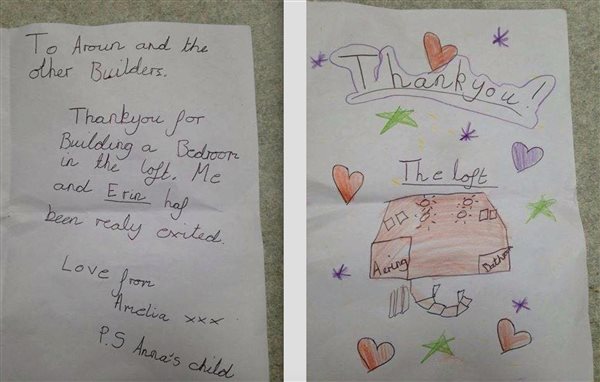 To Aroun and the
other Builders.
Thankyou for
Building a Bedroom
in the loft. Me
and Erin haf
been realy exited.
Love from
Amelia xxx
P.S Anna's child
Thankyou!
The loft